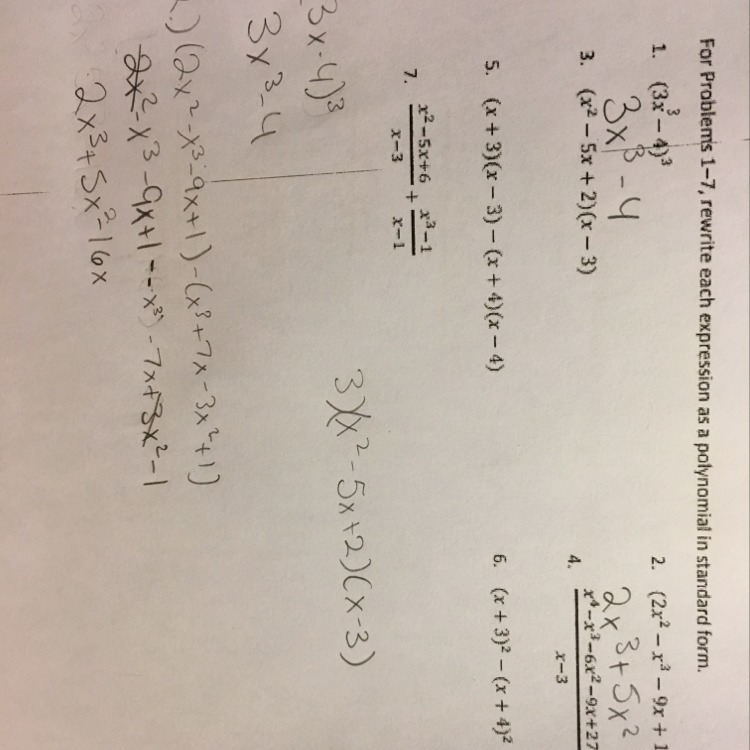 For Problems 1–7, rewrite each expression as a polynomial in standard form.
1. (3x³ – 4)³
3x³ - 4
2. (2x² – x³ – 9x + 1
2x³ + 5x²
3. (x² – 5x + 2)(x – 3)
4. x⁴–x³–6x²–9x+27
x–3
5. (x + 3)(x – 3) – (x + 4)(x – 4)
6. (x + 3)² – (x + 4)²
7. x²–5x+6 / x–3 + x³–1 / x–1
(3x-4)³
3x³-4
3)(x²-5x+2)(x-3)
.)(2x²-x³-9x+1)-(x³+7x-3x²+1)
2x²-x³-9x+1--x³)-7x+3x²-1
2x³+5x²-16x